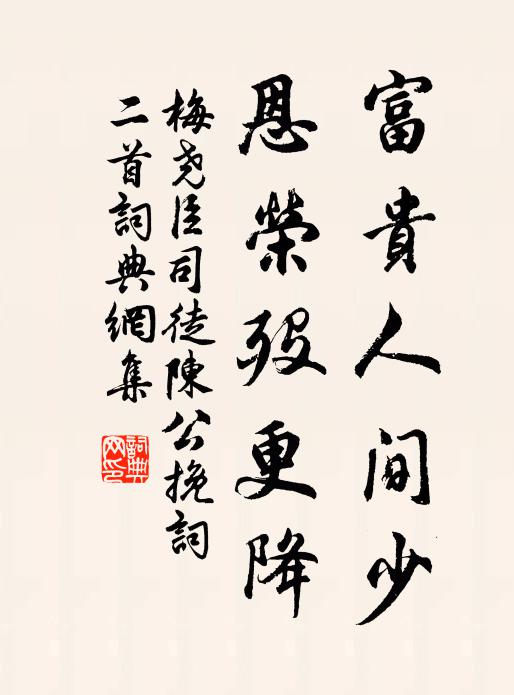 富貴人間少
恩榮歿更降
梅堯臣司徒陳公挽詞
二首詞典網集
詞典
网印